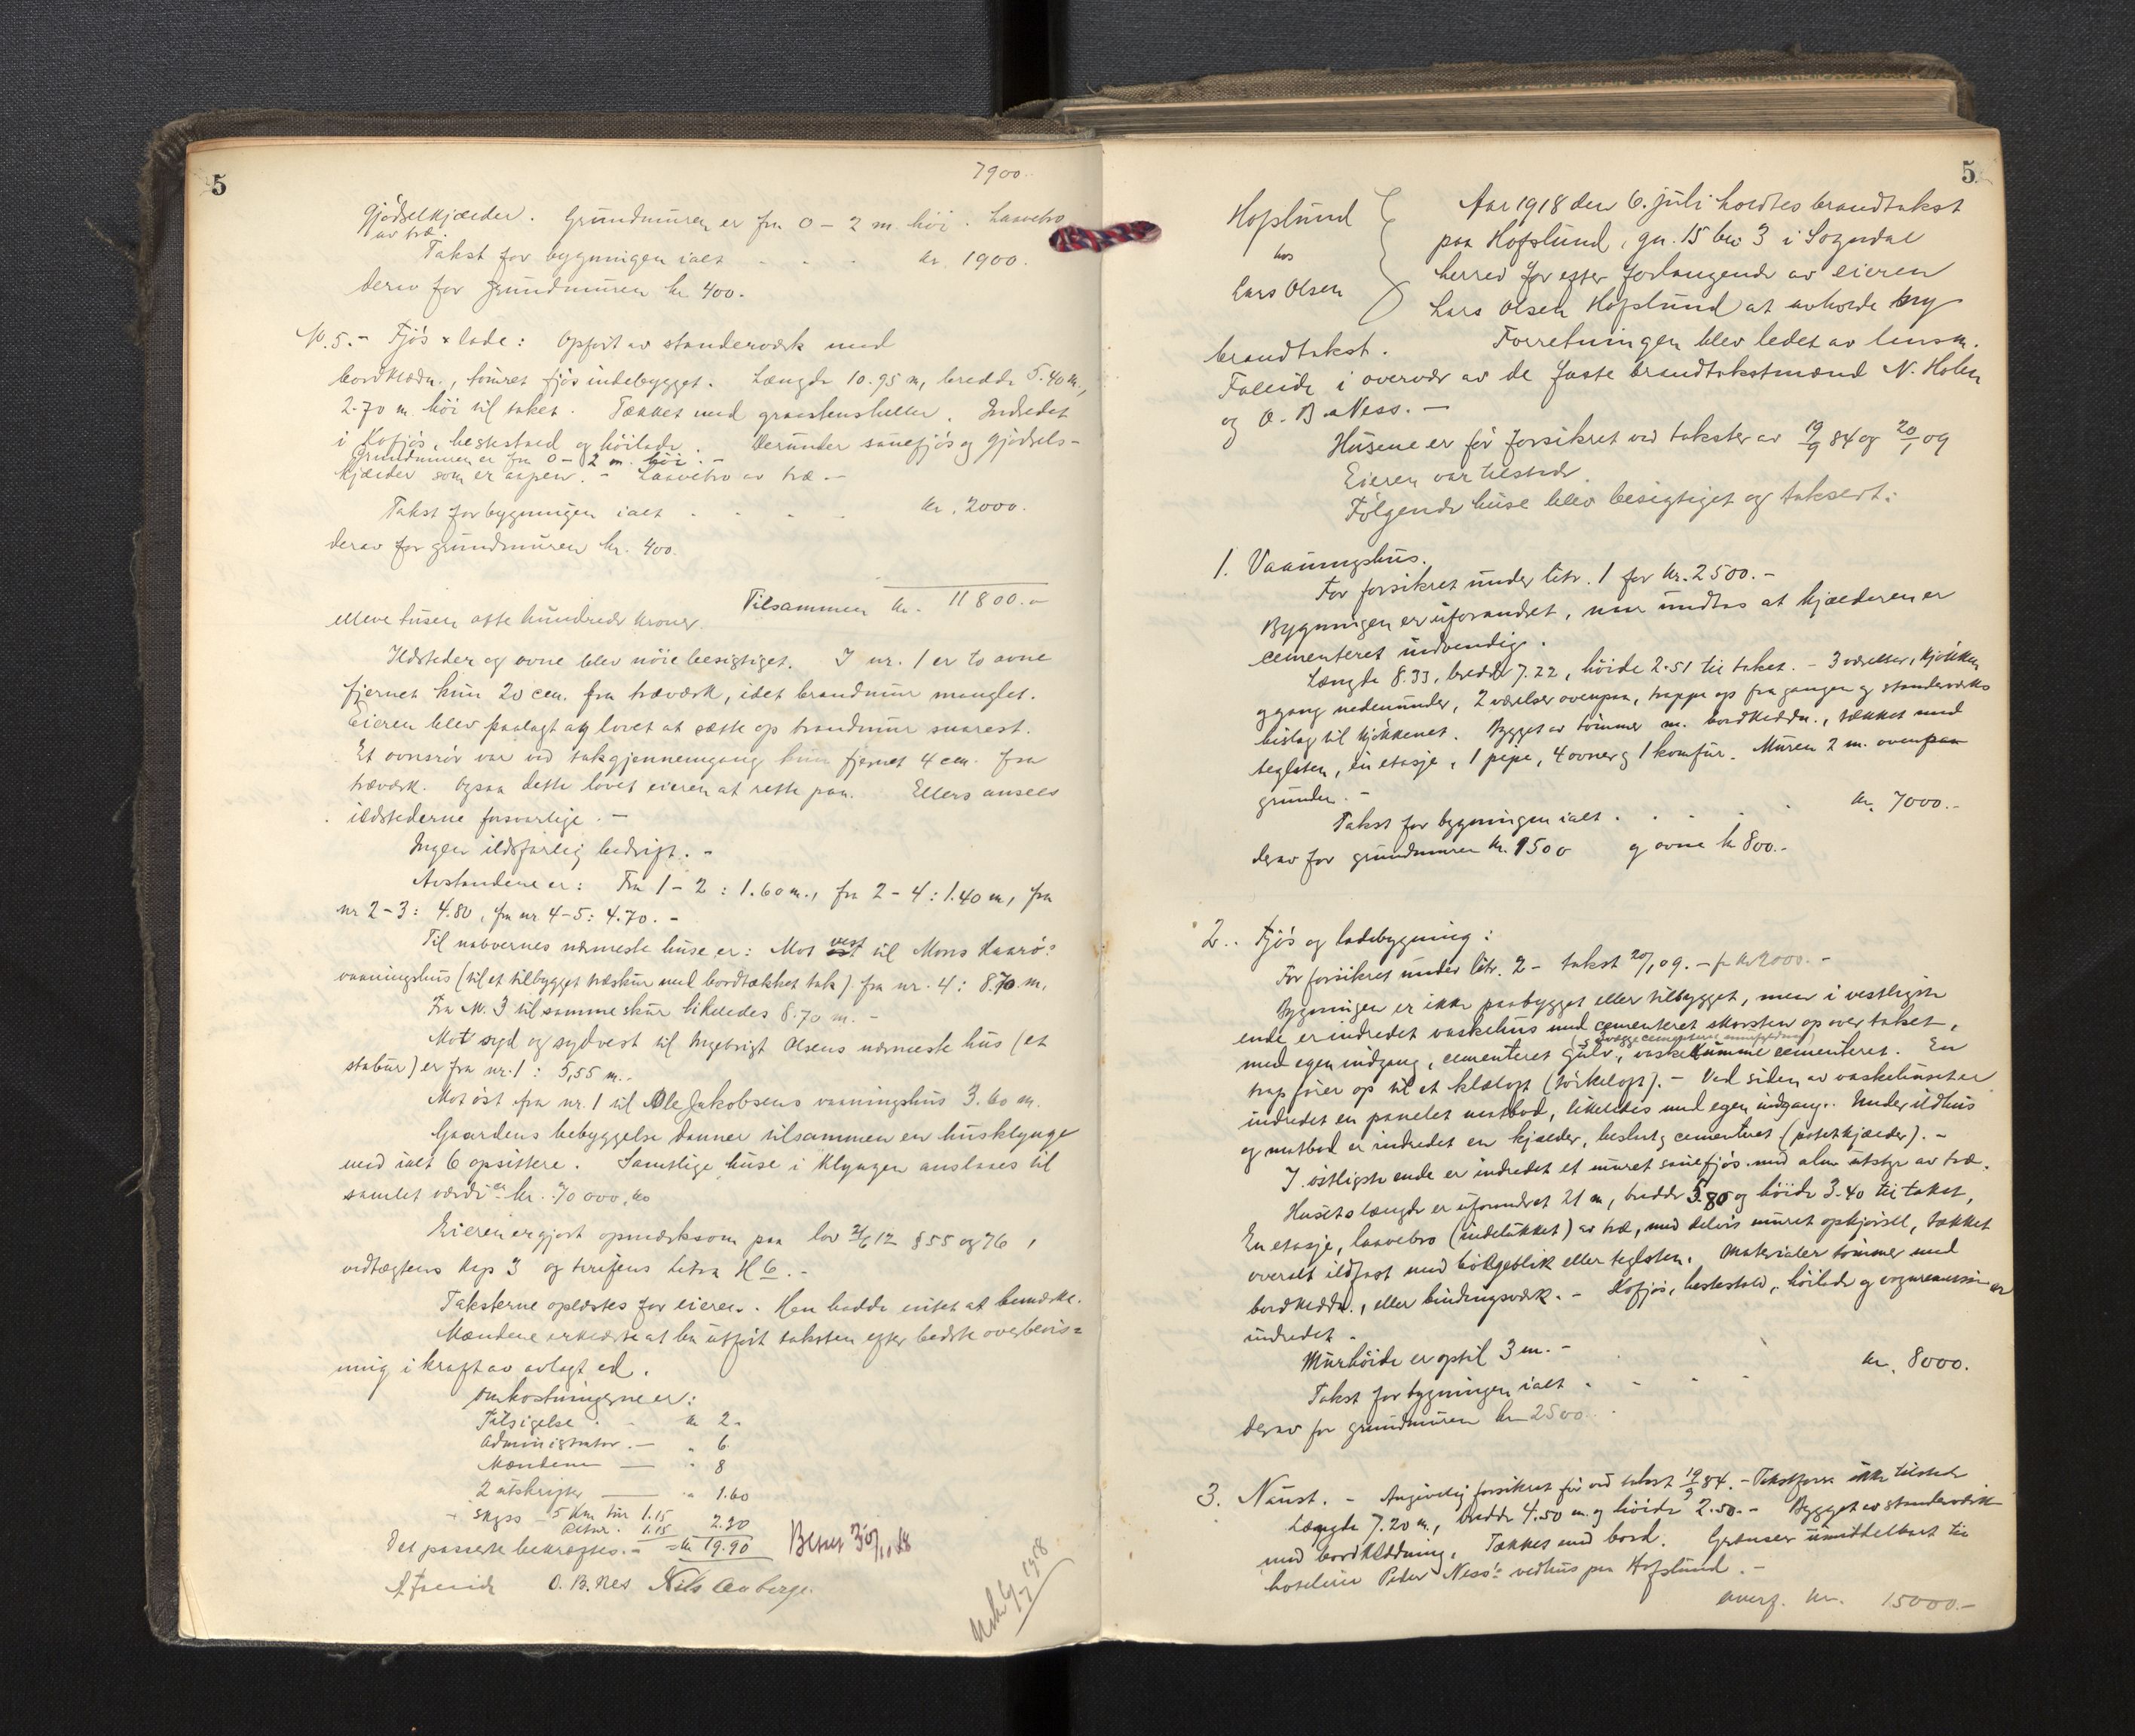 5
7900.
gjødselkjælder. Grundmuren er fra 0 – 2 m. høi. Laavebro
av træ.
Takst for bygningen ialt - - - kr. 1900.
derav for grundmuren kr 400.
N. 5. – Fjøs & lade: Opført av standerværk med
bordklædn., tømret fjøs indebygget. Længde 10.95 m, bredde 5.40 m.,
2.70 m. høi til taket. Tækket med graastensheller. Indredet
i kofjøs, hestestald og høilade. Derunder sauefjøs og gjødsels-
Grundmuren er fra 0 – 2 m. høi. –
kjælder som er aapen. – Laavebro av træ. –
Takst for bygningen ialt - - - kr. 2000.
derav for grundmuren kr. 400.
Tilsammen kr. 11800.–
elleve tusen otte hundrede kroner.
Ildsteder og ovne blev nøie besigtiget. I nr. 1 er to ovne
fjernet kun 20 cm. fra træværk, idet brandmur manglet.
Eieren blev paalagt og lovet at sætte op brandmur snarest.
Et ovnsrør var ved takgjennemgang kun fjernet 4 cm. fra
træværk. Ogsaa dette lovet eieren at rette paa. Ellers ansees
ildstederne forsvarlige. –
Ingen ildsfarlig bedrift. –
Avstandene er: Fra 1 – 2: 1.60 m., fra 2 – 4: 1.40 m, fra
nr 2 – 3: 4.80, fra nr 4 – 5: 4.70. –
Til naboernes nærmeste huse er: Mot vest til Mons
vaaningshus (til et tilbygget træskur med bordtækket tak) fra nr. 4: 8.70 m.
Fra N. 3 til samme skur likeledes 8.70 m. –
Mot syd og sydvest til Ingebrigt Olsens nærmeste hus (et
stabur) er fra nr. 1: 5,55 m..
Mot øst fra nr. 1 til Ole Jakobsens vaaningshus 3.60 m.
Gaardens bebyggelse danner tilsammen en husklynge
med ialt 6 opsittere. Samtlige huse i klyngen anslaaes til
samlet værdi ca kr. 70 000,00
Eieren er gjort opmerksom paa lov 21/6 12 § 55 og 76,
vedtægtens kap 3 og tariffens litra H 6. –
Taksterne oplæstes for eieren. Han hadde intet at bemærke.
Mændene erklærte at ha utført taksten efter bedste overbevis=
ning i kraft av avlagt ed.
Omkostningerne er:
Tilsigelse - - kr 2.
Administrator. – " 6.
Mændene — " 8
2 utskrifter — " 1.60
skyss – 5 km tur 1.15
Retur. 1.15 2.30
Det passerte bekræftes. – = kr 19.90
Betalt 30/10 18
O. B. Nes Nils
Utsk. 6/7 1918
5
Hofslund
hos
Lars Olsen
Aar 1918 den 6. juli holdtes brandtakst
paa Hofslund, gn. 15 bn 3 i Sogndal
herred for efter forlangende av eieren
Lars Olsen Hofslund at avholde ny
brandtakst. Forretningen blev ledet av lensm.
Falleide i overvær av de faste brandtakstmænd N. Holen
og O. B. Ness. –
Husene er før forsikret ved takster av 19/9 84 og 20/1 09
Eieren var tilstede.
Følgende huse blev besigtiget og taksert:
1. Vaaningshus.
Før forsikret under litr. 1 for kr. 2500. –
Bygningen er uforandret, naar undtas at kjælderen er
cementeret indvendig.
Længde 8.33, bredde 7.22, høide 2.51 til taket. – 3 værelser, kjøkken
og gang nedenunder, 2 værelser ovenpaa, trappe op fra gangen og standerværks
bislag til kjøkkenet. Bygget av tømmer m. bordklædn., tækket med
teglsten, en etasje, 1 pipe, 4 ovner og 1 komfur. Muren 2 m. ovenpaa
grunden. –
Takst for bygningen ialt . . . . kr. 7000.–
derav for grundmuren kr. 1500 og ovne kr 800.–
2. Fjøs og ladebygning:
Før forsikret under litr. 2 – takst 20/1 09. – for kr 2000. –
Bygningen er ikke paabygget eller tilbygget, men i vestligste
ende er indredet vaskehus med cementeret skorsten op over taket,
med egen indgang, cementeret gulv, vaskekumme cementeret. En
trap fører op til et klæloft (tørkeloft). – Ved siden av vaskehuset er
indredet en panelet matbod, likeledes med egen indgang. Under ildhus
og matbod er indredet en kjælder, beslut og cementeret (potetkjælder). –
I østligste ende er indredet et muret sauefjøs med alm utstyr av træ.
Husets længde er uforandret 21 m, bredde 5.80 og høide 3.40 til taket,
En etasje, laavebro (indelukket) av træ, med delvis muret opkjørsel, tækket
overalt ildfast med bølgeblik eller teglsten. Materialer tømmer med
bordklædn., eller bindingsværk. – Kofjøs, hestestald, høilade og vognremisse er
indredet. –
Murhøide er optil 3 m. –
Takst for bygningen ialt . - - - kr. 8000.
derav for grundmuren kr 2500.
3. Naust. – Angivelig forsikret før ved takst 19/9 84. – Takstforr. ikke tilstede
Længde 7.20 m., bredde 4.50 m. og høide 2.50. – Bygget av standerværk
med bordklædning. Tækket med bord. Grænser umiddelbart til
hoteleier Peder Ness's vedhus paa Hofslund. –
overf. kr. 15000.–